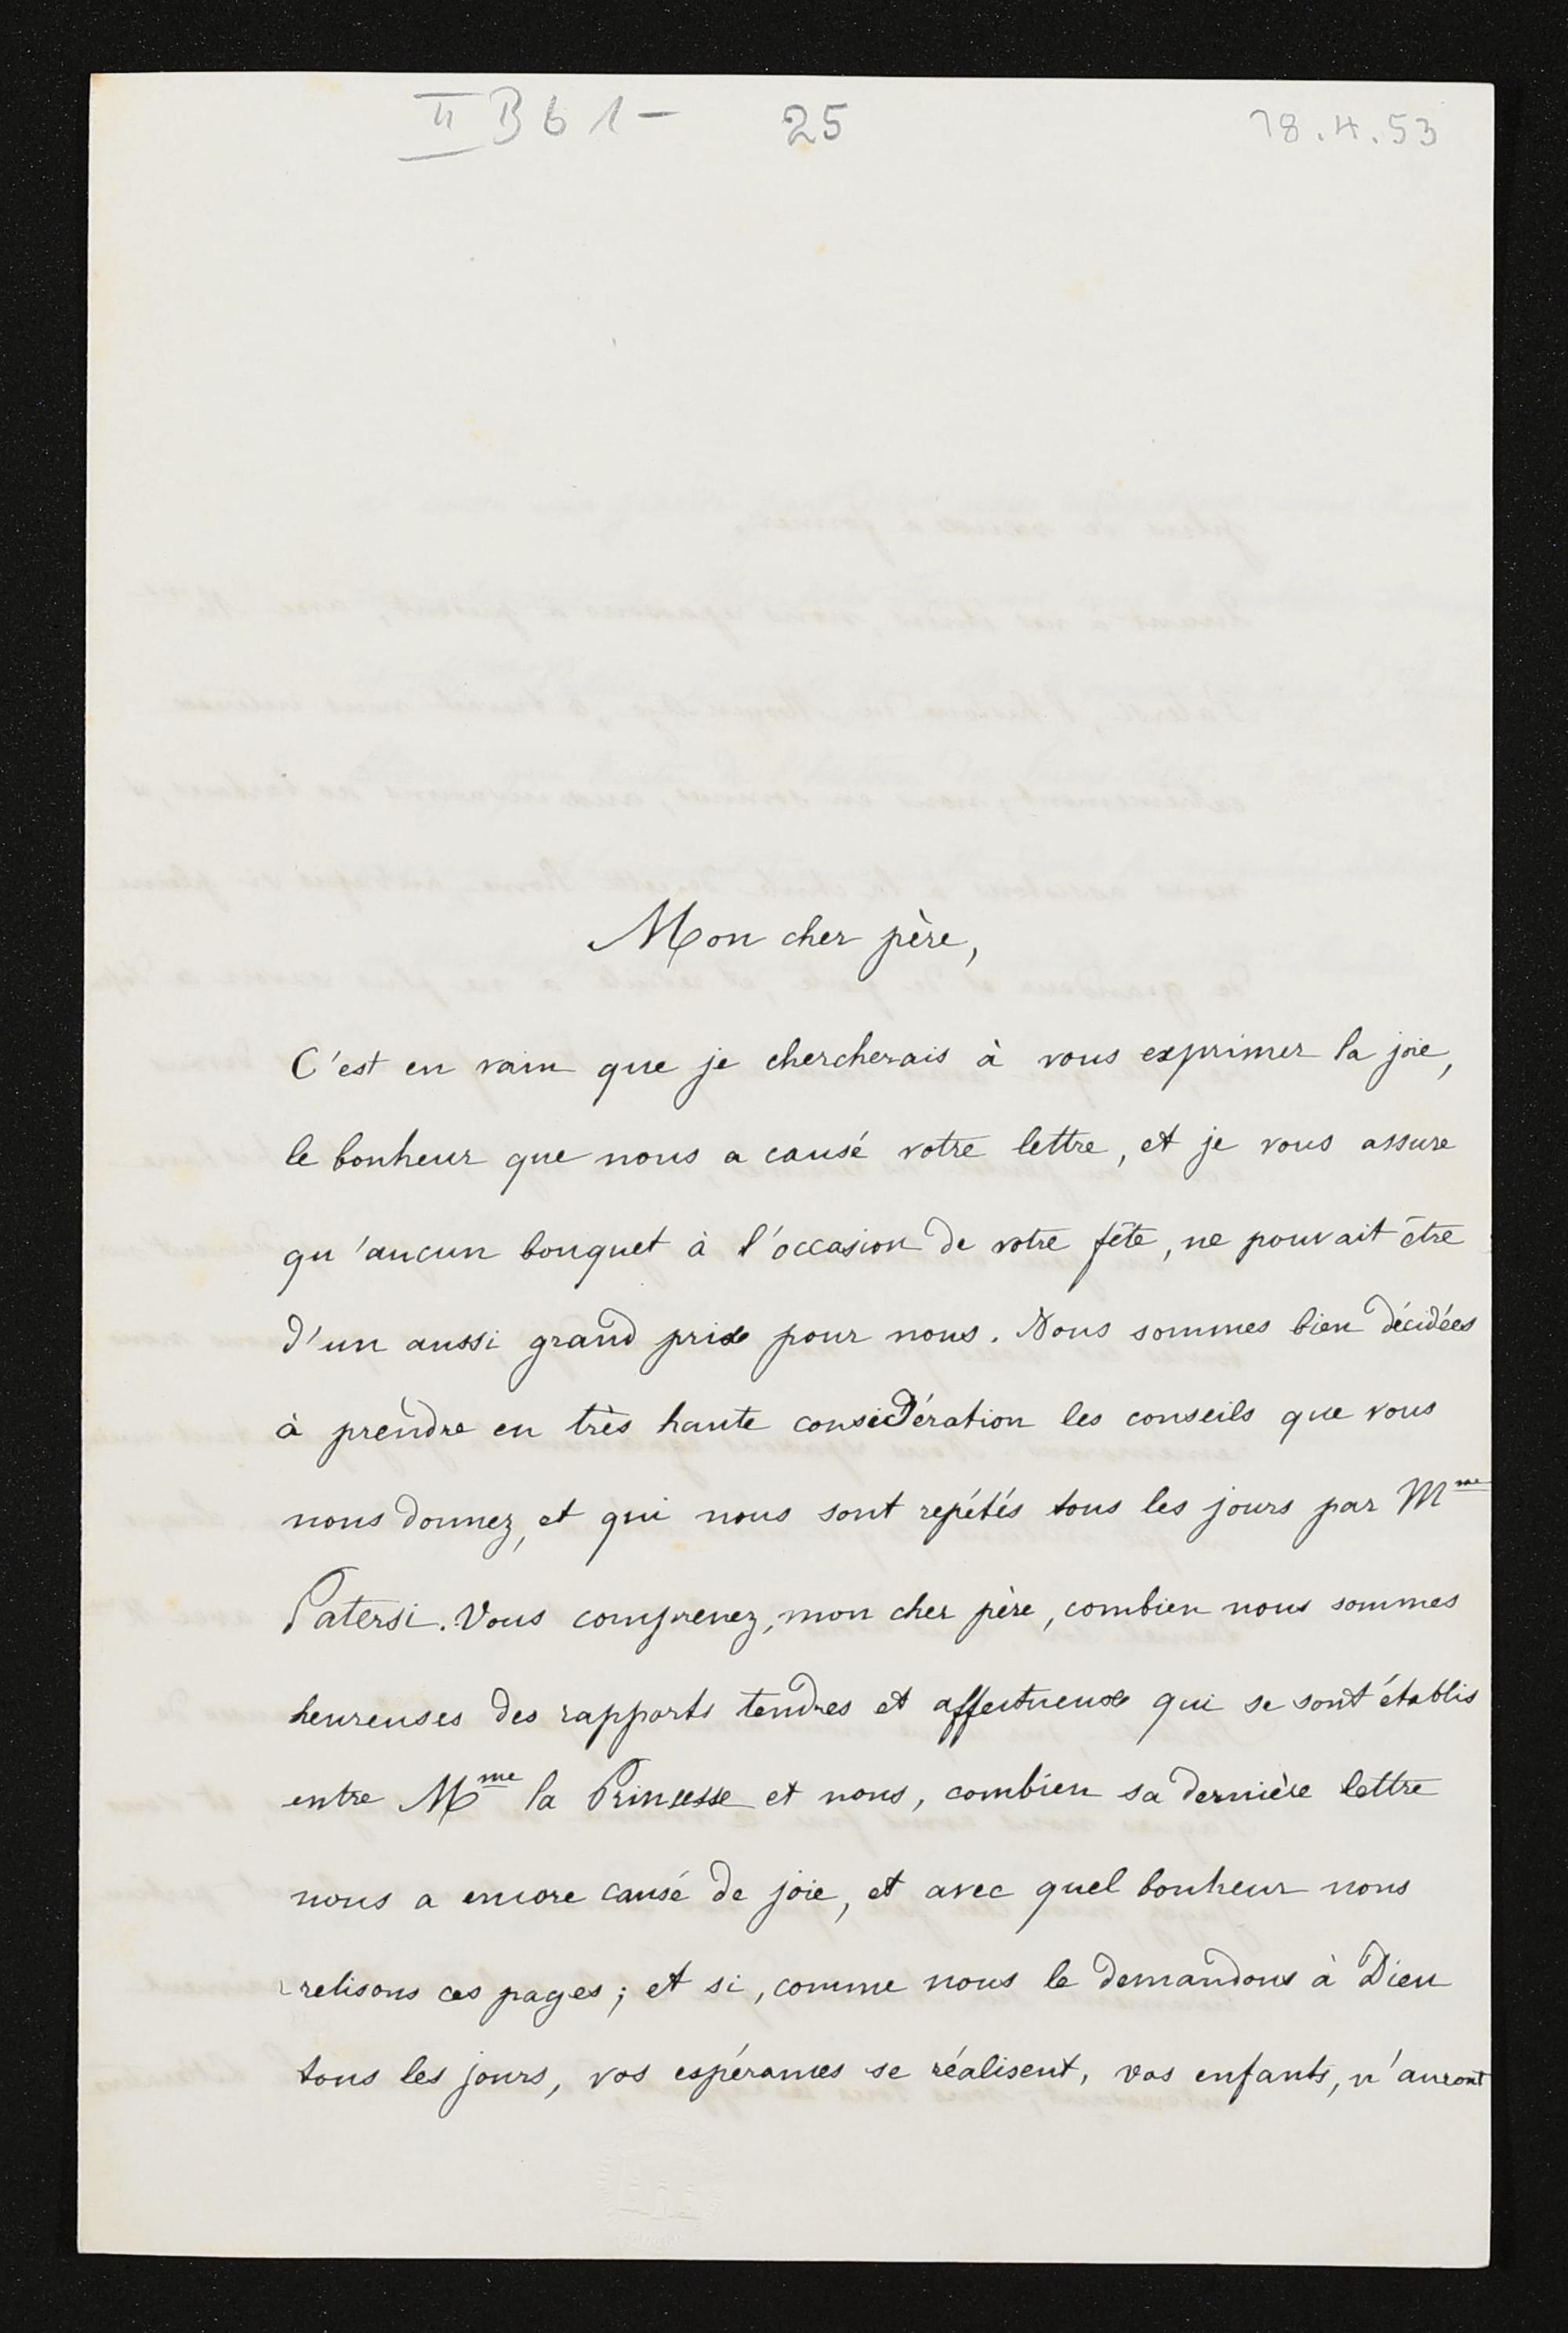 II B b 1 - 25 18.4.53
Mon cher père,
C'est en vain que je chercherais à vous exprimer la joie,
le bonheur que nous a causé votre lettre, et je vous assure
qu'aucun bouquet à l'occasion de votre fête, ne pouvait être
d'un aussi grand prix pour nous. Nous sommes bien décidées
à prendre en très haute considération les conseils que vous
nous donnez, et qui nous sont repétés tous les jours par Mme
Patersi. Vous comprenez, mon cher père, combien nous sommes
heureuses des rapports tendres et affectueux qui se sont établis
entre Mme la Princesse et nous, combien sa dernière lettre
nous a encore causé de joie, et avec quel bonheur nous
relisons ces pages; et si, comme nous le demandons à Dieu
tous les jours, vos espérances se réalisent, vos enfants, n'auront